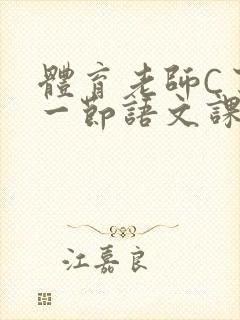 體育老師C
一節語文課
江嘉良